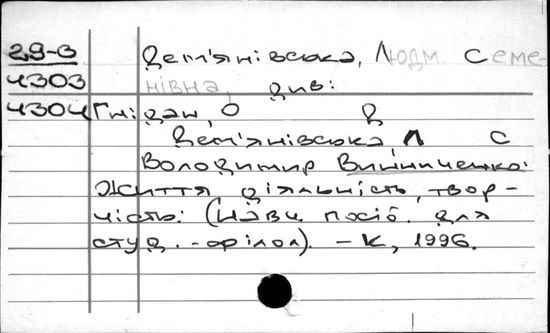 29-В Дем'янівська, Людм. Семе-
4303 нівна, див:
4304 Гнідан, О Д
Дем'янівська, Л С
Володимир Винниченко:
Життя діяльність, твор-
чість: (Навч. посіб. для
студ. -філол). – К, 1996.